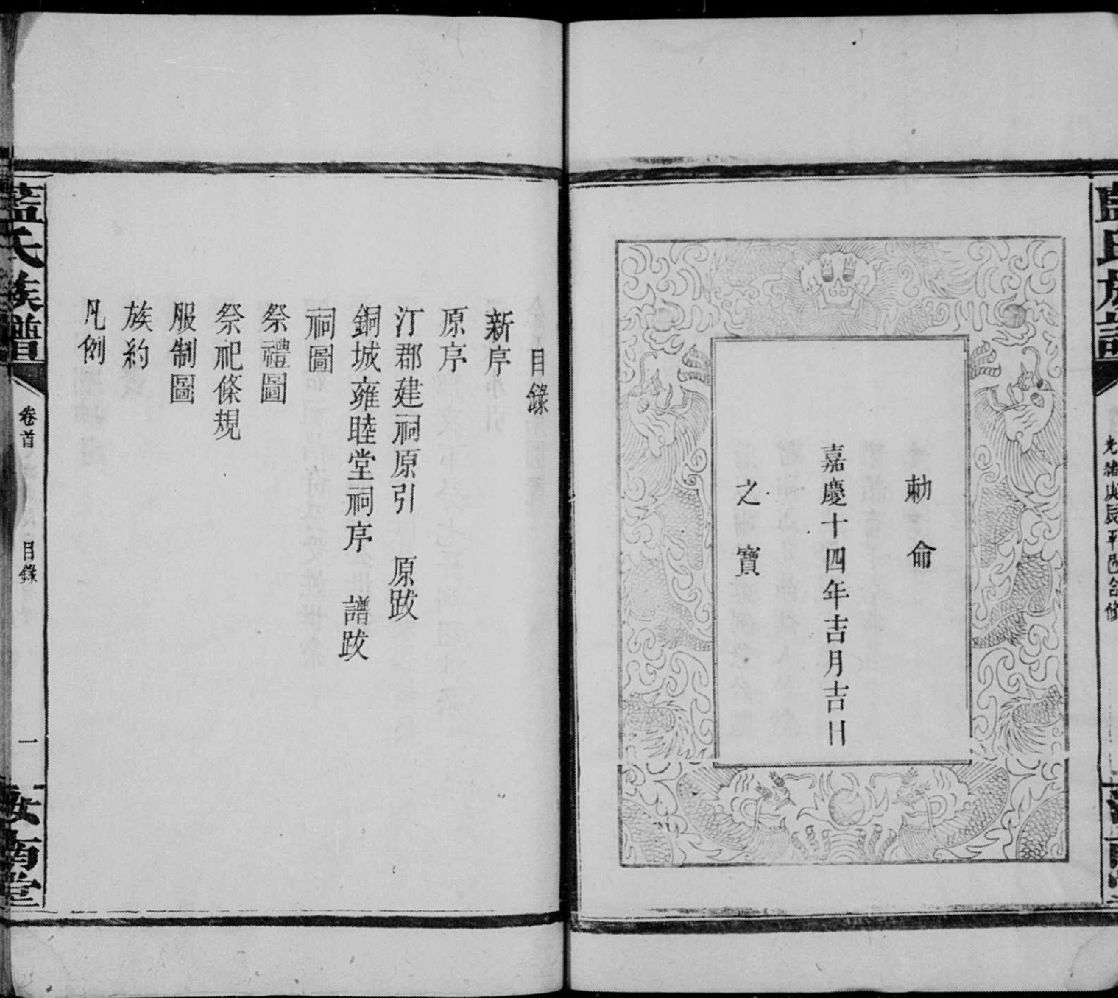 勅命
嘉慶十四年吉月吉日
之寶
目錄
新序
原序
汀郡建祠原引 原跋
銅城雍睦堂祠序 譜跋
祠圖
祭禮圖
祭祀條規
服制圖
族約
凡例
藍氏族譜 卷首 目錄 一 汝南堂